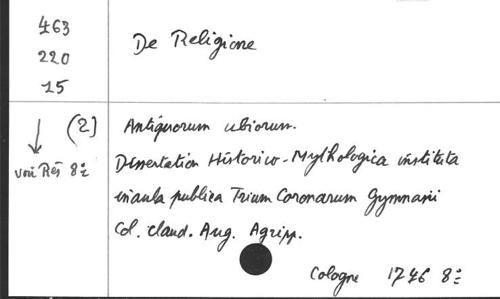 463
220
15
De Religione
(2)
voir Rés 8º
Antiquorum ubiorum.
Dissertation Historico-Mythologica instituta
in aula publica Trium Coronarum Gymnasii
Col. Claud. Aug. Agripp.
Cologne 1746 8º